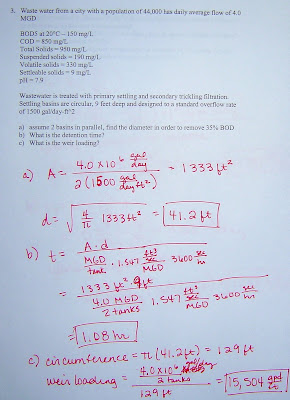 3. Waste water from a city with a population of 44,000 has daily average flow of 4.0
MGD
BOD5 at 20°C – 150 mg/L
COD = 850 mg/L
Total Solids = 950 mg/L
Suspended solids = 190 mg/L
Volatile solids = 330 mg/L
Settleable solids = 9 mg/L
pH = 7.9
Wastewater is treated with primary settling and secondary trickling filtration.
Settling basins are circular, 9 feet deep and designed to a standard overflow rate
of 1500 gal/day-ft^2
a) assume 2 basins in parallel, find the diameter in order to remove 35% BOD
b) What is the detention time?
c) What is the weir loading?
a) A = 4.0 x 10^6 gal/day / 2(1500 gal/day ft²) = 1333 ft²
d = √(4/π 1333 ft²) = 41.2 ft
b) t = A·d / MGD/tank · 1.547 ft³/sec/MGD 3600 sec/hr
= 1333 ft² 9ft / 4.0 MGD/2 tanks 1.547 ft³/sec/MGD 3600 sec/hr
= 1.08 hr
c) circumference = π(41.2ft) = 129 ft
weir loading = 4.0x10^6 gal/day / 2 tanks / 129 ft = 15,504 gpd/ft